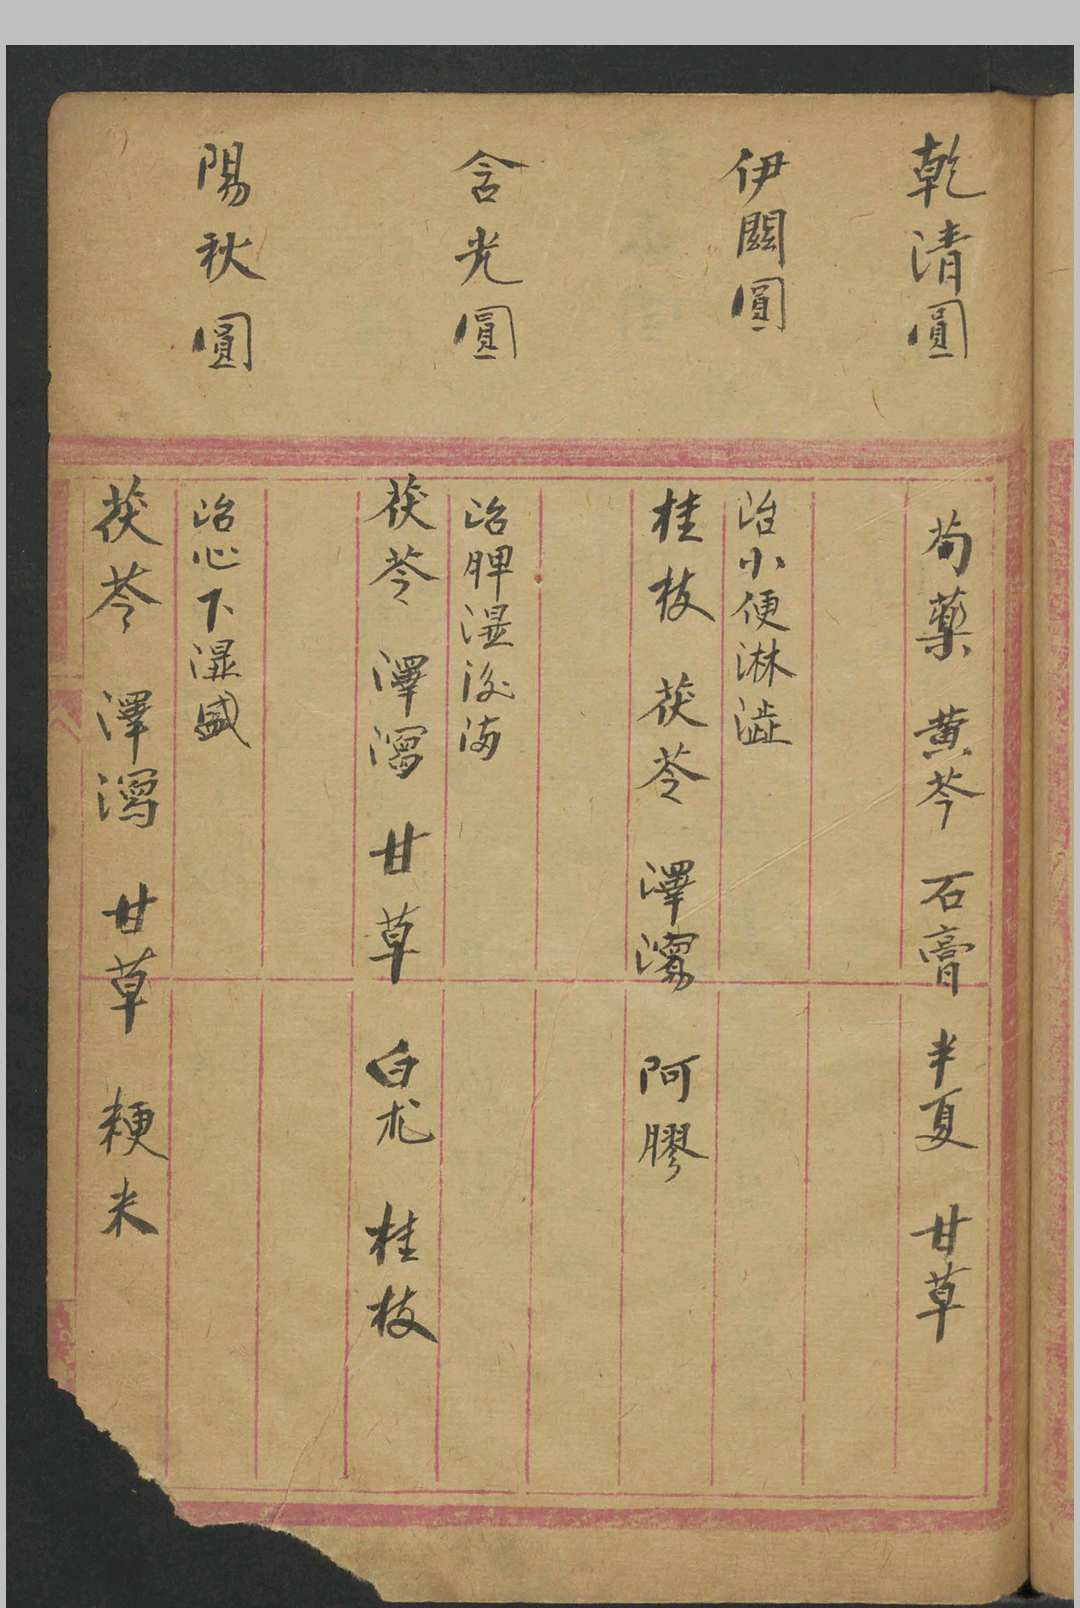 乾清圓
芍藥 黄芩 石膏 半夏 甘草
伊闕圓
治小便淋澁
桂枝 茯苓 澤瀉 阿膠
含光圓
治脾湿
茯苓 澤瀉 甘草 白朮 桂枝
陽秋圓
治心下湿盛
茯苓 澤瀉 甘草 粳米